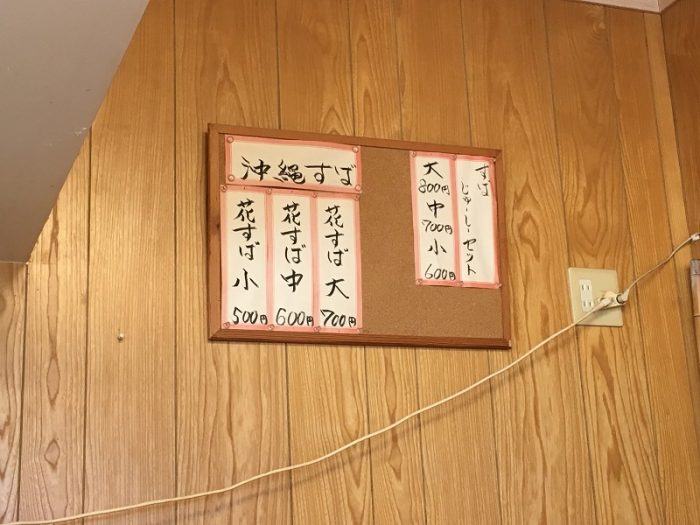 沖縄すば
花すば 大 700円
花すば 中 600円
花すば 小 500円
すば
じゅーしーセット
大 800円
中 700円
小 600円